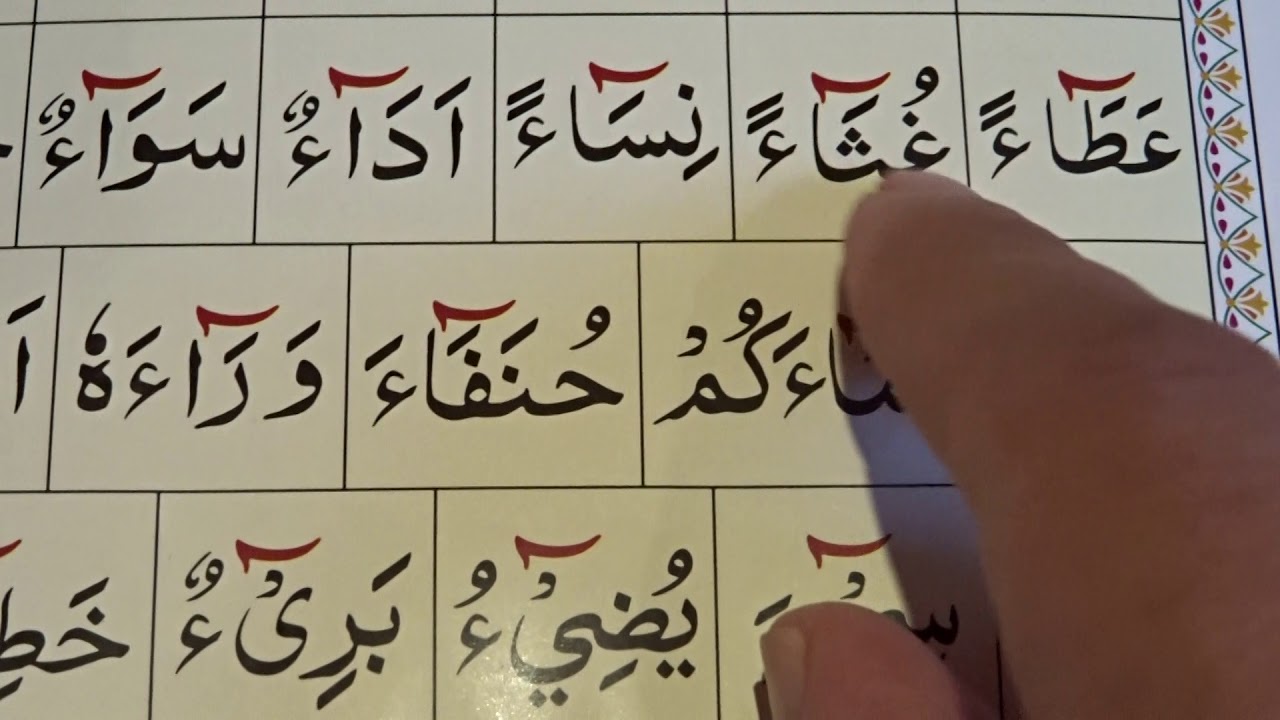 عَطَآءً غُثَآءً نِسَآءً اَدَآءٌ سَوَآءٌ
حُنَفَآءَ وَرَآءَهٗ
يُضِيْٓءُ بَرِىْٓءٌ